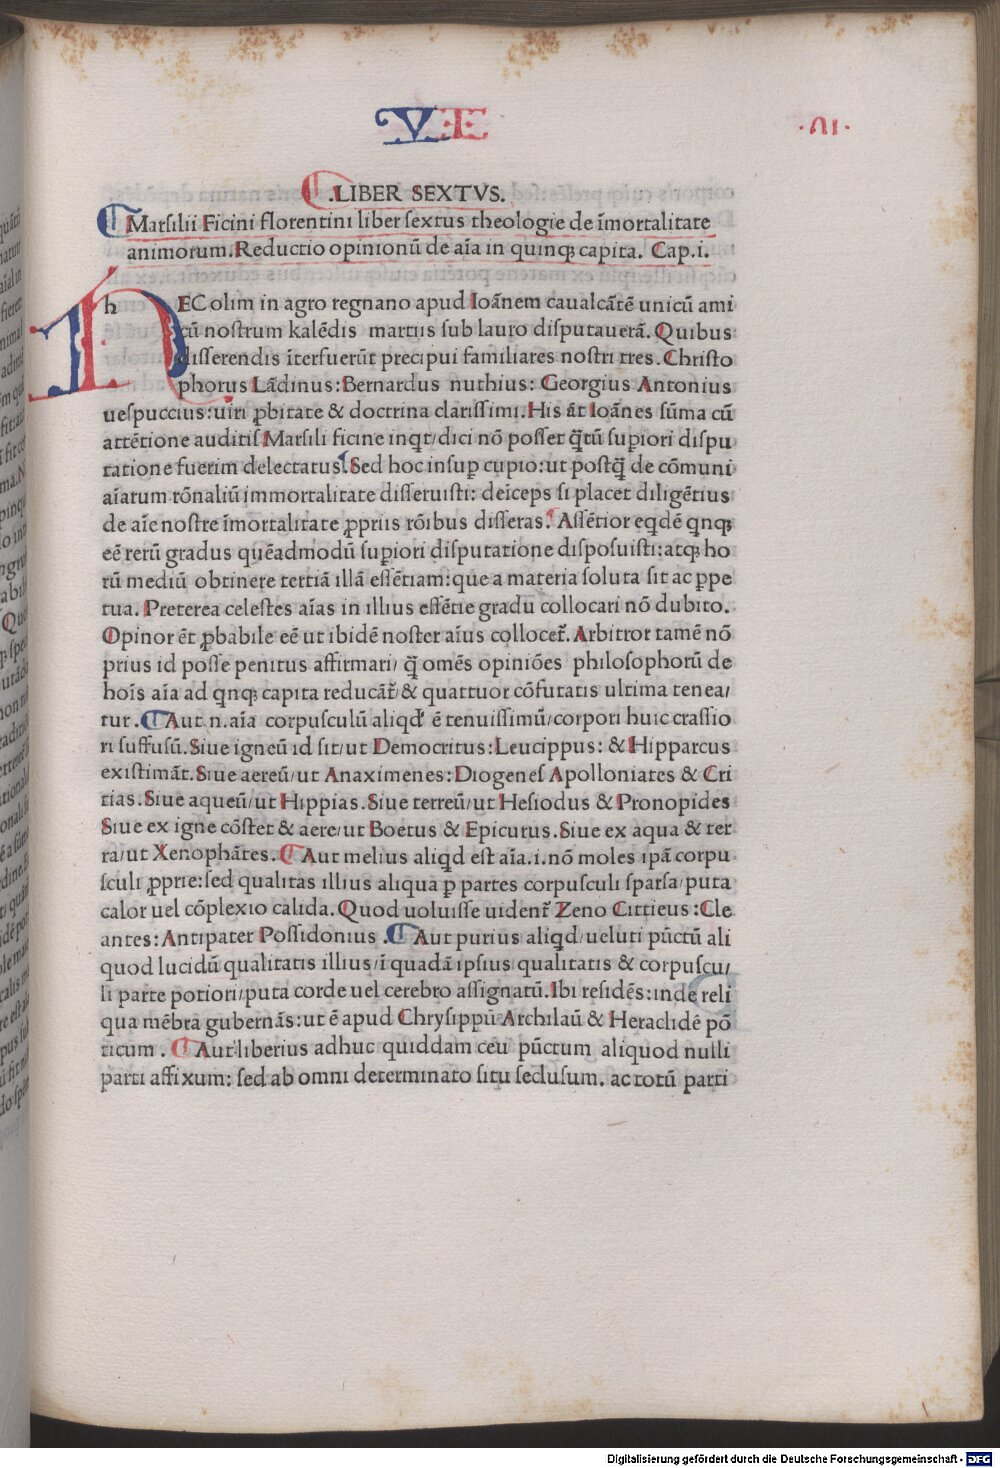 VI
·VI·
.LIBER SEXTVS.
Marsilii Ficini florentini liber sextus theologie de īmortalitate
animorum. Reductio opinionū de aīa in quinqꝫ capita. Cap.i.
h EC olim in agro regnano apud Ioānem caualcātē unicū ami
cū nostrum kalēdis martiis sub lauro disputauerā. Quibus
disserendis īterfuerūt precipui familiares nostri tres. Christo
phorus Lādinus: Bernardus nuthius: Georgius Antonius
uespuccius: uiri ꝓbitate & doctrina clarissimi. His āt Ioānes sūma cū
attētione auditis Marsili ficine inqt/dici nō posset q̄tū suꝑiori dispu
tatione fuerim delectatus. Sed hoc insuꝑ cupio: ut postq̄ de cōmuni
aīarum rōnaliū immortalitate disseruisti: deīceps si placet diligētius
de aīe nostre īmortalitate ꝓpriis rōibus disseras. Assētior eqdē qnqꝫ
eē rerū gradus quēadmodū suꝑiori disputatione disposuisti: atqꝫ ho
rū mediū obtinere tertiā illā essētiam: que a materia soluta sit ac ꝑpe
tua. Preterea celestes aīas in illius essētie gradu collocari nō dubito.
Opinor ēt ꝓbabile eē ut ibidē noster aīus collocet̄. Arbitror tamē nō
prius id posse penitus affirmari/ q̄ omēs opiniōes philosophorū de
hoīs aīa ad qnqꝫ capita reducāt̄/& quattuor cōfutatis ultima tenea/
tur. Aut.n.aīa corpusculū aliqd ē tenuissimū/corpori huic crassio
ri suffusū. Siue igneū id sit/ut Democritus: Leucippus: & Hipparcus
existimāt. Siue aereū/ut Anaximenes: Diogenes Apolloniates & Cri
tias. Siue aqueū/ut Hippias. Siue terreū/ut Hesiodus & Pronopides
Siue ex igne cōstet & aere/ut Boetus & Epicurus. Siue ex aqua & ter
ra/ut Xenophātes. Aut melius aliqd est aīa.i.nō moles ipā corpu
sculi ꝓprie: sed qualitas illius aliqua ꝑ partes corpusculi sparsa/puta
calor uel cōplexio calida. Quod uoluisse uident̄ Zeno Cittieus: Cle
antes: Antipater Possidonius. Aut purius aliqd/ueluti pūctū ali
quod lucidū qualitatis illius/ī quadā ipsius qualitatis & corpuscu/
li parte potiori/puta corde uel cerebro assignatū. Ibi residēs: inde reli
qua mēbra gubernās: ut ē apud Chrysippū Archilaū & Heraclidē pō
ticum. Aut liberius adhuc quiddam ceu pūctum aliquod nulli
parti affixum: sed ab omni determinato situ seclusum. ac totū parti
Digitalisierung gefördert durch die Deutsche Forschungsgemeinschaft - DFG